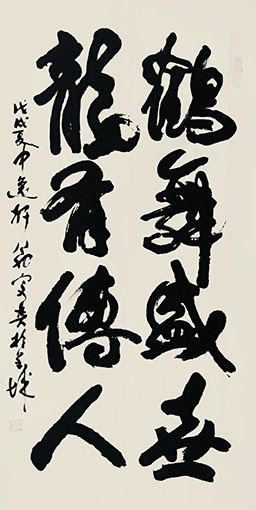 鶴舞盛世
龍有傳人
戊戌夏中逸軒